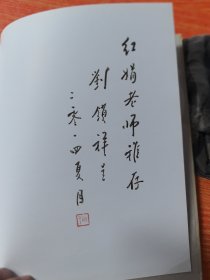 红娟老师雅存
刘领祥呈
二零一四夏月